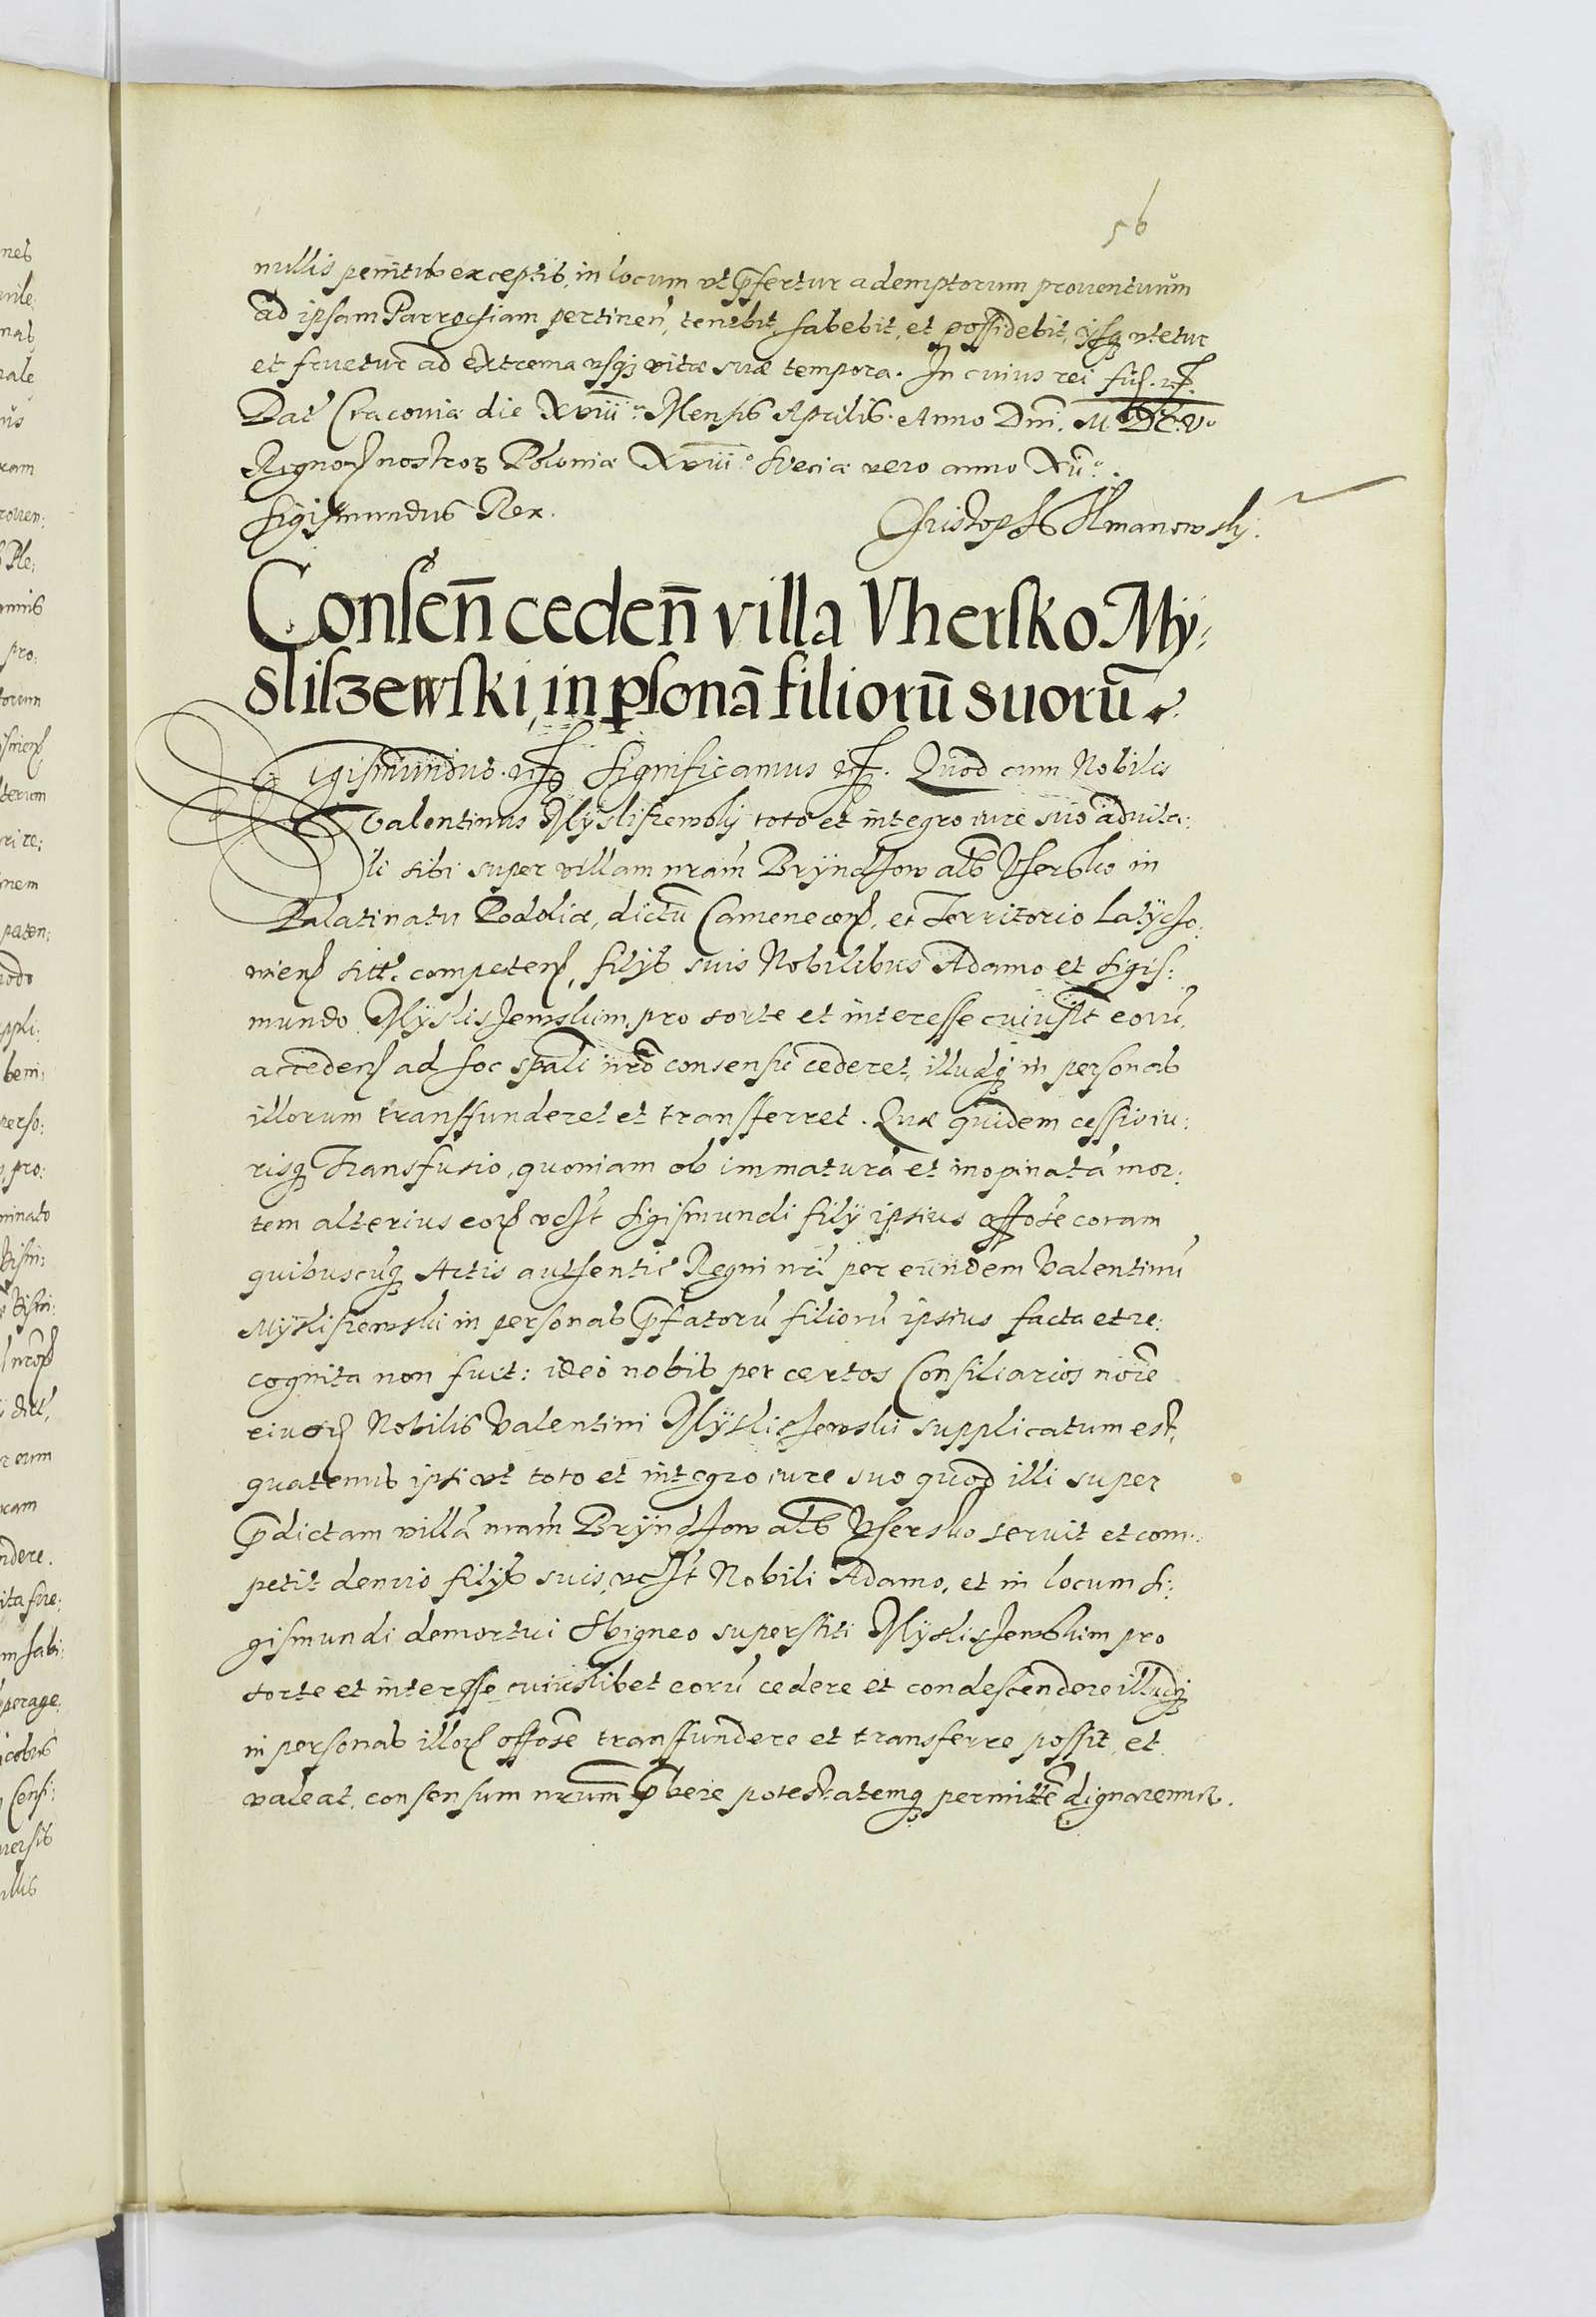 56
nullis penitus exceptis, in locum ut p̄fertur ademptorum proventuum
ad ipsam Parrochiam pertinen̄, tenebit, habebit, et possidebit, ijsq; utetur
et fruetur ad extrema usq; vitæ suæ tempora. In cuius rei fid. etc.
Dat Cracoviæ die XVIII Mensis Aprilis. Anno Dni. M.DC.V.
Regnor nostror Poloniæ XVIII° Sveciæ vero anno XII°.
Sigismundus Rex.
Christoph
Consen̄ ceden̄ villa Vhersko My,
sliszewski, in p̱sonā filiorū suorū.
Sigismundus etc. Significamus etc. Quod cum Nobilis
Valentinus Mysliszewsky toto et integro iure suo advita:
li sibi super villam nram Bryndzow als Vhersko in
Palatinatu Podoliæ, dictū Camenecen, et Territorio Latyczo:
wien sitt. competen, filijs suis Nobilibus Adamo et Sigis:
mundo Mysliszewskim, pro sorte et interesse cuiuslt eorū,
acceden ad hoc spāli nrō consensu cederet, illudq; in personas
illorum transfunderet et transferret. Quæ quidem cessio iu:
risq; transfusio, quoniam ob immaturā et inopinatā mor:
tem alterius eor vczt Sigismundi filij ipsius offōse coram
quibuscūq; Actis authentic Regni nri per eundem Valentinū
Mysliszewski in personas p̄fatorū filiorū ipsius facta et re:
cognita non fuit: ideo nobis per certos Consiliarios noīe
eiusd Nobilis Valentini Mysliszewski supplicatum est,
quatenus ipsi ut toto et integro iure suo quod illi super
p̄dictam villā nram Bryndzow als Vhersko servit et com:
petit denuo filijs suis, vczt Nobili Adamo, et in locum Si:
gismundi demortui Sbigneo superstiti Mysliszewskim pro
sorte et interesse cuiuslibet eorū cedere et condescendere illudq;
in personas illor offōse transfundere et transferre possit et
valeat, consensum nrum p̄bere potestatemq; permittē dignaremur.